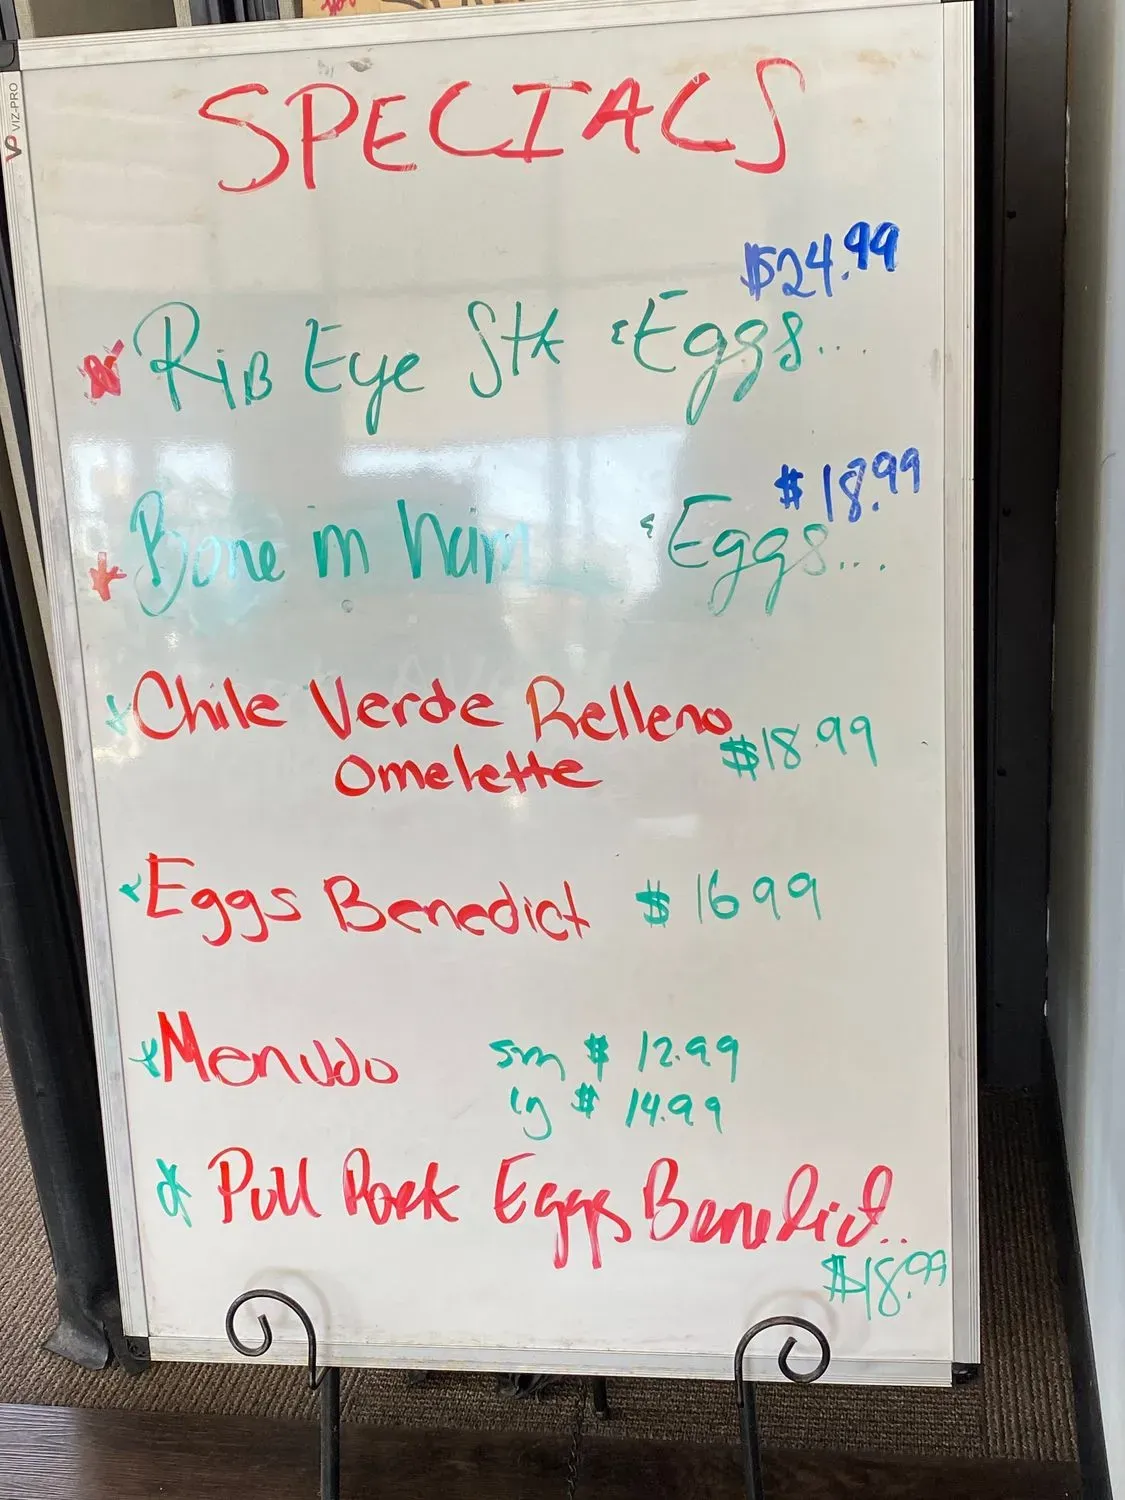 you
VP VIZ-PRO
SPECIALS
$24.99
Rib Eye Stk & Eggs...
$18.99
Bone in ham & Eggs...
Chile Verde Relleno
omelette $18.99
Eggs Benedict $16 99
Menudo sm $12.99
lg $14.99
Pull Pork Eggs Benedict..
$18.99